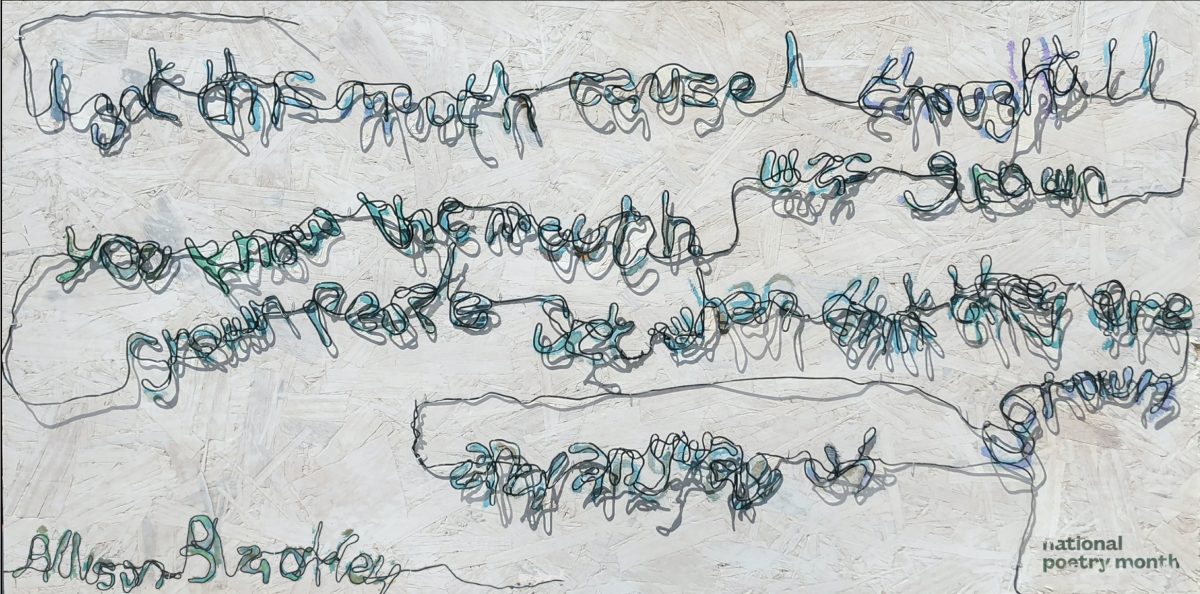 I got this mouth cause I thought I
was grown
you know the mouth
grown people use when think they are
grown
and anyway
Allison
national
poetry month